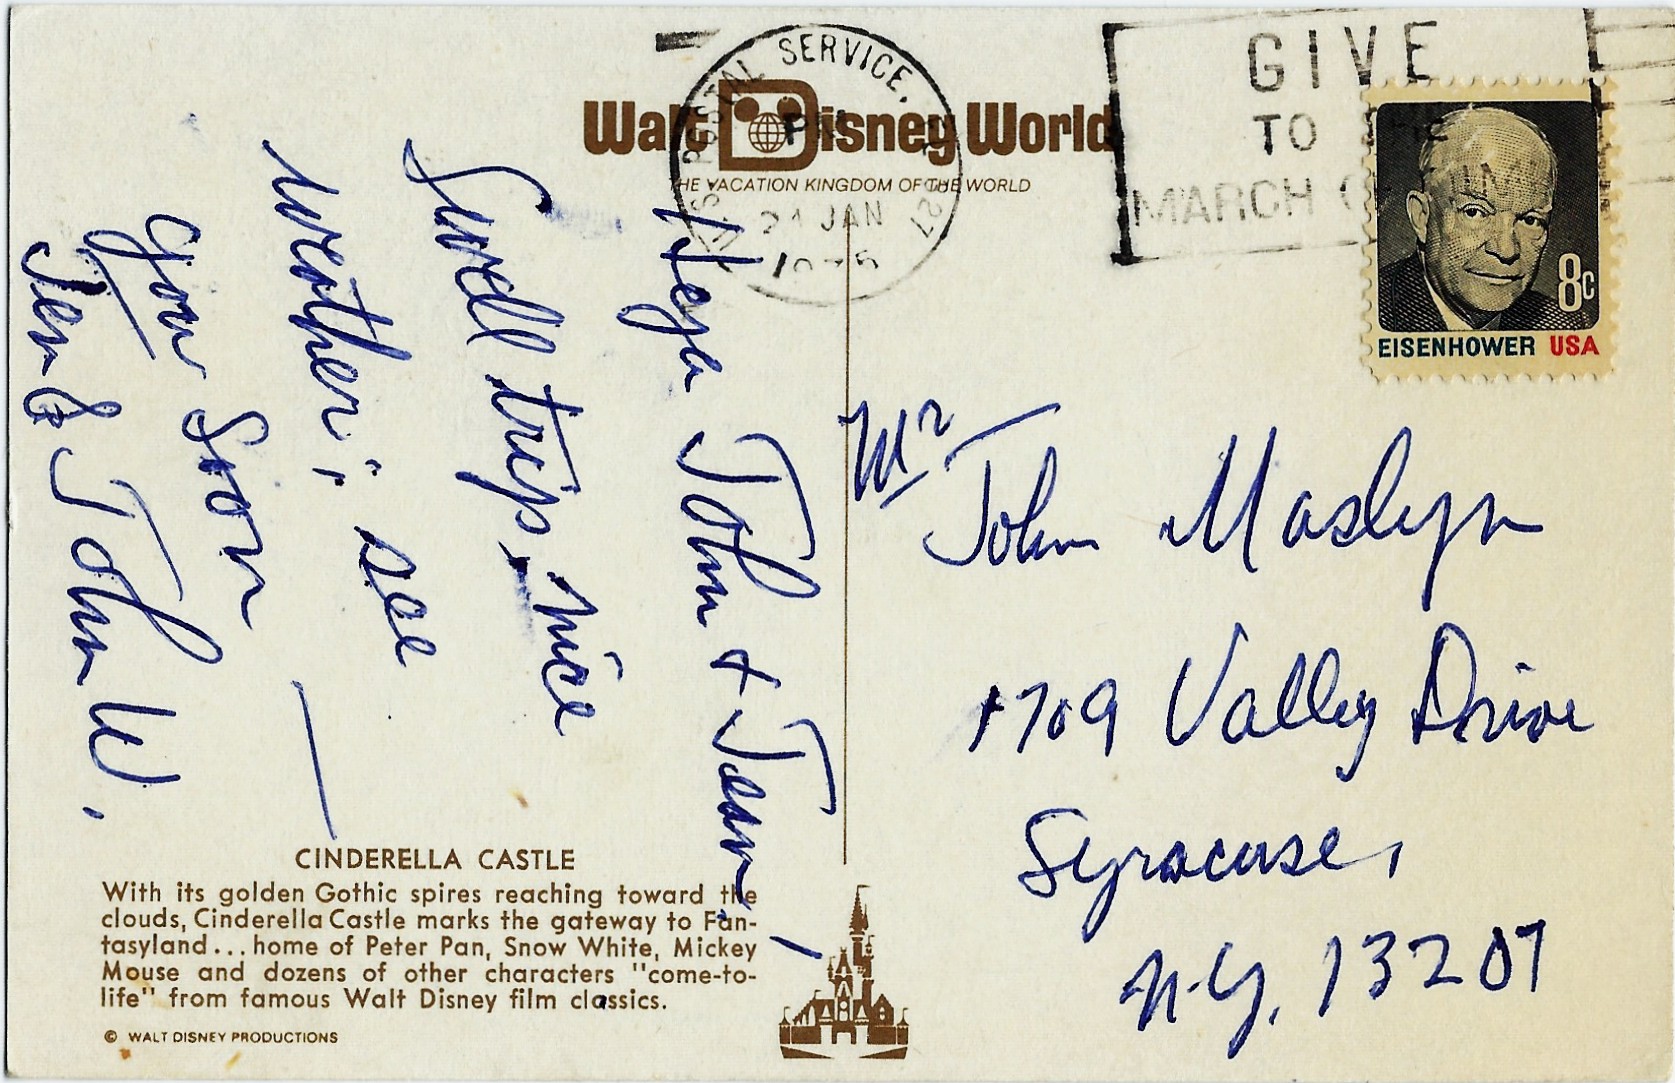 Walt Disney World
THE VACATION KINGDOM OF THE WORLD
U.S. POSTAL SERVICE, 327
PM
24 JAN
1975
GIVE
TO THE
MARCH OF DIMES
8c
EISENHOWER USA
Heya John + Jean,
Swell trip, nice
weather; see
you soon —
Jen & John W.
Mr
John Maslyn
1709 Valley Drive
Syracuse,
N.Y. 13207
CINDERELLA CASTLE
With its golden Gothic spires reaching toward the
clouds, Cinderella Castle marks the gateway to Fan-
tasyland...home of Peter Pan, Snow White, Mickey
Mouse and dozens of other characters "come-to-
life" from famous Walt Disney film classics.
© WALT DISNEY PRODUCTIONS